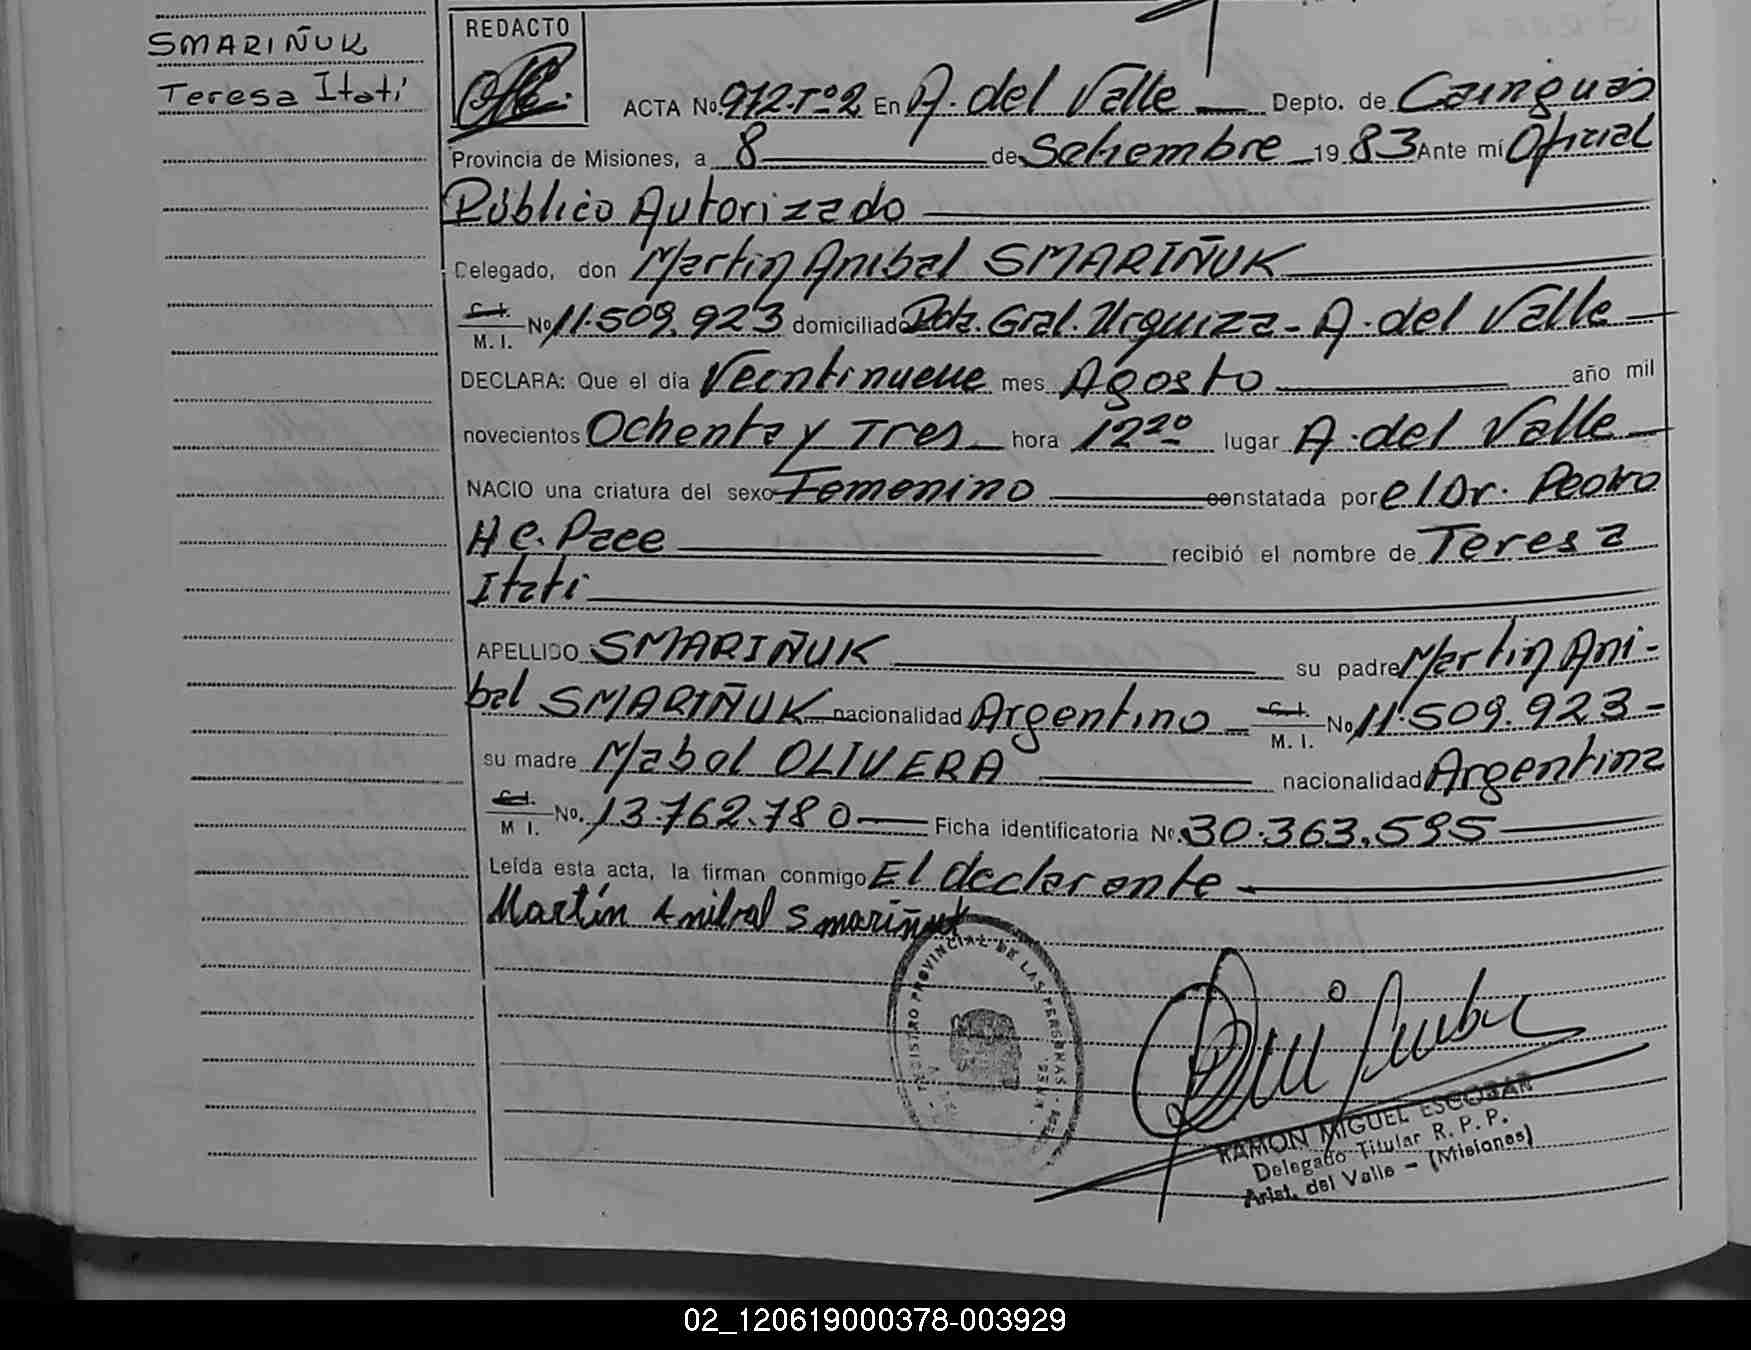 SMARIÑUK
Teresa Itatí
REDACTO
ACTA No. 972-Tº2 En A. del Valle Depto. de Cainguás
Provincia de Misiones, a 8 de Setiembre 19 83 Ante mí Oficial
Público Autorizado
Delegado, don Martin Anibal SMARIÑUK
C.I.
M. I. No 11.509.923 domiciliado Pdte. Gral. Urquiza - A. del Valle
DECLARA: Que el día Veintinueve mes Agosto año mil
novecientos Ochenta y Tres hora 12 20 lugar A. del Valle
NACIO una criatura del sexo Femenino constatada por el Dr. Pedro
H C. Pace recibió el nombre de Teresa
Itati
APELLIDO SMARIÑUK su padre Martin Ani-
bal SMARIÑUK nacionalidad Argentino C.I. M. I. No 11.509.923-
su madre Mabel OLIVERA nacionalidad Argentina
C.I.
M I. No. 13.762.780 Ficha identificatoria No. 30.363.595
Leída esta acta, la firman conmigo El declarante
Martín Anibal Smariñuk
REGISTRO PROVINCIAL DE LAS PERSONAS
RAMON MIGUEL ESCOBAR
Delegado Titular R. P. P.
Arist. del Valle - (Misiones)
02_120619000378-003929